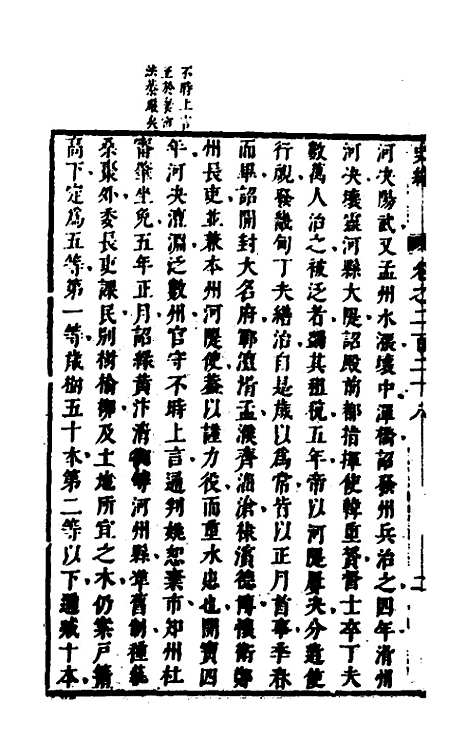 史緯 卷之二百二十八 二
河決陽武又孟州水漲壞中潬橋詔發州兵治之四年滑州
河決壞靈河縣大隄詔殿前都指揮使韓重贇督士卒丁夫
數萬人治之被泛者蠲其租稅五年帝以河隄屢決分遣使
行視發畿甸丁夫繕治自是歲以爲常皆以正月首事季春
而畢詔開封大名府鄆澶滑孟濮齊淄滄棣濱德博懷衛鄭
州長吏並兼本州河隄使蓋以謹力役而重水患也開寶四
年河決澶淵泛數州官守不時上言通判姚恕棄市知州杜
審肇坐免五年正月詔緣黃汴清御等河州縣準舊制種蓺
桑棗外委長吏課民別樹榆柳及土地所宜之木仍案戶籍
高下定爲五等第一等歲樹五十本第二等以下遞減十本
不時上言
至於姜市
法蓋嚴矣